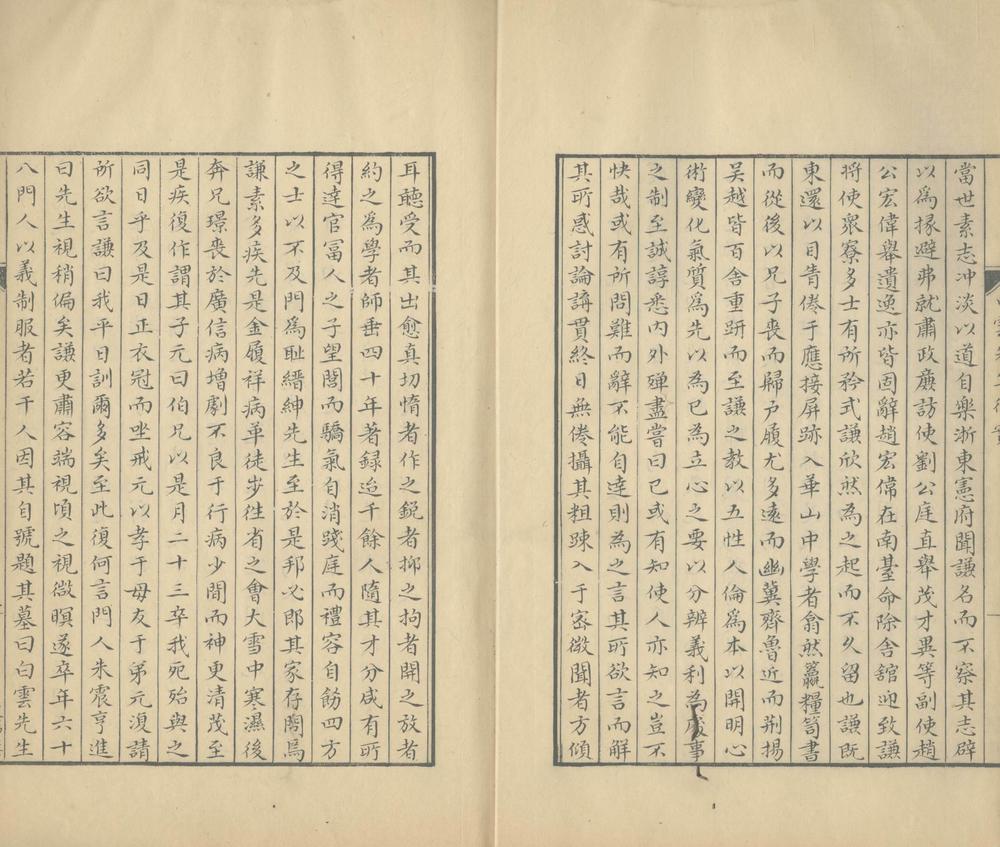 當世素志冲淡以道自樂浙東憲府聞謙名而不察其志辟
以為掾避弗就肅政廉訪使劉公庭直舉茂才異等副使趙
公宏偉舉遺逸亦皆固辭趙宏偉在南臺命除舍舘迎致謙
將使衆寮多士有所矜式謙欣然為之起而不久留也謙既
東還以目眚倦于應接屏跡入華山中學者翕然羸糧笥書
而從後以兄子喪而歸戶履尤多遠而幽冀齊魯近而荆揚
吳越皆百舍重趼而至謙之教以五性人倫為本以開明心
術變化氣質為先以為已為立心之要以分辨義利為處事
之制至誠諄悉內外殫盡嘗曰已或有知使人亦知之豈不
快哉或有所問難而辭不能自達則為之言其所欲言而解
其所惑討論講貫終日無倦攝其粗踈入于宻微聞者方傾
耳聽受而其出愈真切惰者作之銳者抑之拘者開之放者
約之為學者師垂四十年著録迨千餘人隨其才分咸有所
得達官冨人之子望閭而驕氣自消踐庭而禮容自飭四方
之士以不及門為耻縉紳先生至於是邦必郎其家存問焉
謙素多疾先是金履祥病革徒步徃省之會大雪中寒濕後
奔兄璟喪於廣信病增劇不良于行病少間而神更清茂至
是疾復作謂其子元曰伯兄以是月二十三卒我死殆與之
同日乎及是日正衣冠而坐戒元以孝于母友于弟元湏請
所欲言謙曰我平日訓爾多矣至此復何言門人朱震亨進
曰先生視稍偏矣謙更肅容端視頃之視微暝遂卒年六十
八門人以義制服者若干人因其自號題其墓曰白雲先生